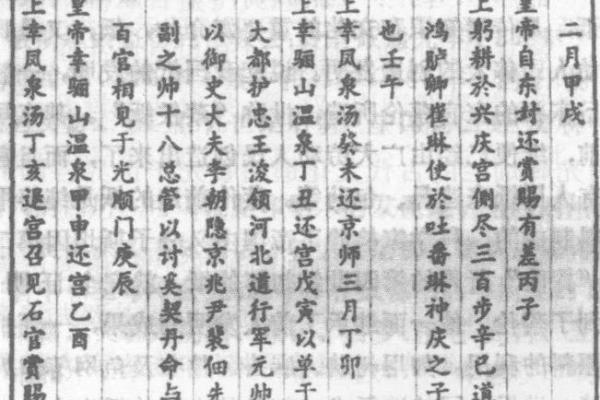 二月甲戌
皇帝自东封还赏赐有差丙子
上躬耕於兴庆宫侧尽三百步辛巳道
鸿胪卿崔琳使於吐番琳神庆之子
也壬午
上幸凤泉汤癸未还京师三月丁卯
上幸骊山温泉丁丑还宫戊寅以单于
大都护忠王浚领河北道行军元帅
以御史大夫李朝隐京兆尹裴伷先
副之帅十八总管以讨奚契丹命与
百官相见于光顺门庚辰
皇帝幸骊山温泉甲申还宫乙酉
上幸凤泉汤丁亥退宫召见石官赏赐